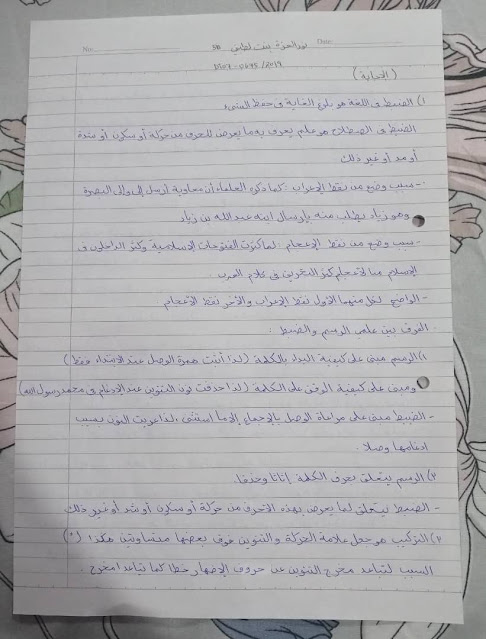 No: نور العزة بنت لطفي 5A Date:
D107-0695/2019
(الإجابة)
١) الضبط في اللغة هو بلوغ الغاية في حفظ الشيء
الضبط في الاصطلاح هو علم يعرف به ما يعرض للحرف من حركة أو سكون أو شدة
أو مد أو غير ذلك
- سبب وضع من نقط الإعراب : كما ذكره العلماء أن معاوية أرسل إلى والي البصرة
وهو زياد يطلب منه بإرسال ابنه عبد الله بن زياد
- سبب وضع من نقط الإعجام : لما كثرت الفتوحات الإسلامية وكثر الداخلين في
الإسلام من الأعجام كثر التحريف في كلام العرب .
- الواضع لكل منهما الأول نقط الإعراب والآخر نقط الإعجام
الفرق بين علمي الرسم والضبط :
١) الرسم مبني على كيفية البداء بالكلمة (لذا أثبتت همزة الوصل عند الابتداء فقط)
ومبني على كيفية الوقف على الكلمة (لذا حذفت نون التنوين عند الإدغام في محمد رسول الله)
- الضبط مبني على مراعاة الوصل بالإجماع إلا ما استثنى ، لذا عريت النون بسبب
ادغامها وصلا .
٢) الرسم يتعلق بحرف الكلمة إثباتا وحذفا .
- الضبط يتعلق لما يعرض بهذه الأحرف من حركة أو سكون أو شد أو غير ذلك
٢) التركيب هو جعل علامة الحركة والتنوين فوق بعضها متساويتين هكذا :
السبب لتباعد مخرج التنوين عن حروف الإظهار خطا كما تباعدا مخرج .